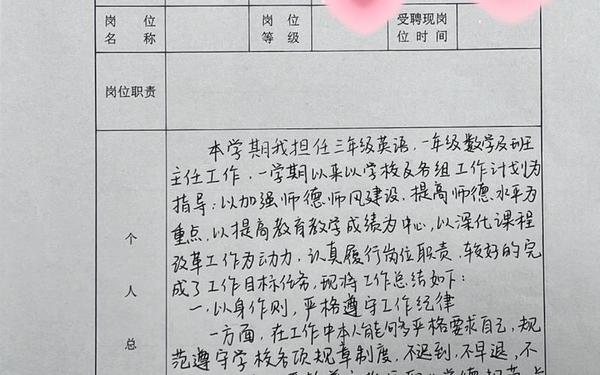 岗位名称 岗位等级 受聘现岗位时间
岗位职责
个人总
本学期我担任三年级英语，一年级数学及班
主任工作，一学期以来以学校及各组工作计划为
指导：以加强师德师风建设，提高师德水平为
重点，以提高教育教学成绩为中心，以深化课程
改革工作为动力，认真履行岗位职责，较好的完
成了工作目标任务，现将工作总结如下：
一、以身作则，严格遵守工作纪律
一方面，在工作中本人能够严格要求自己，规
范遵守学校各项规章制度，不迟到，不早退，不